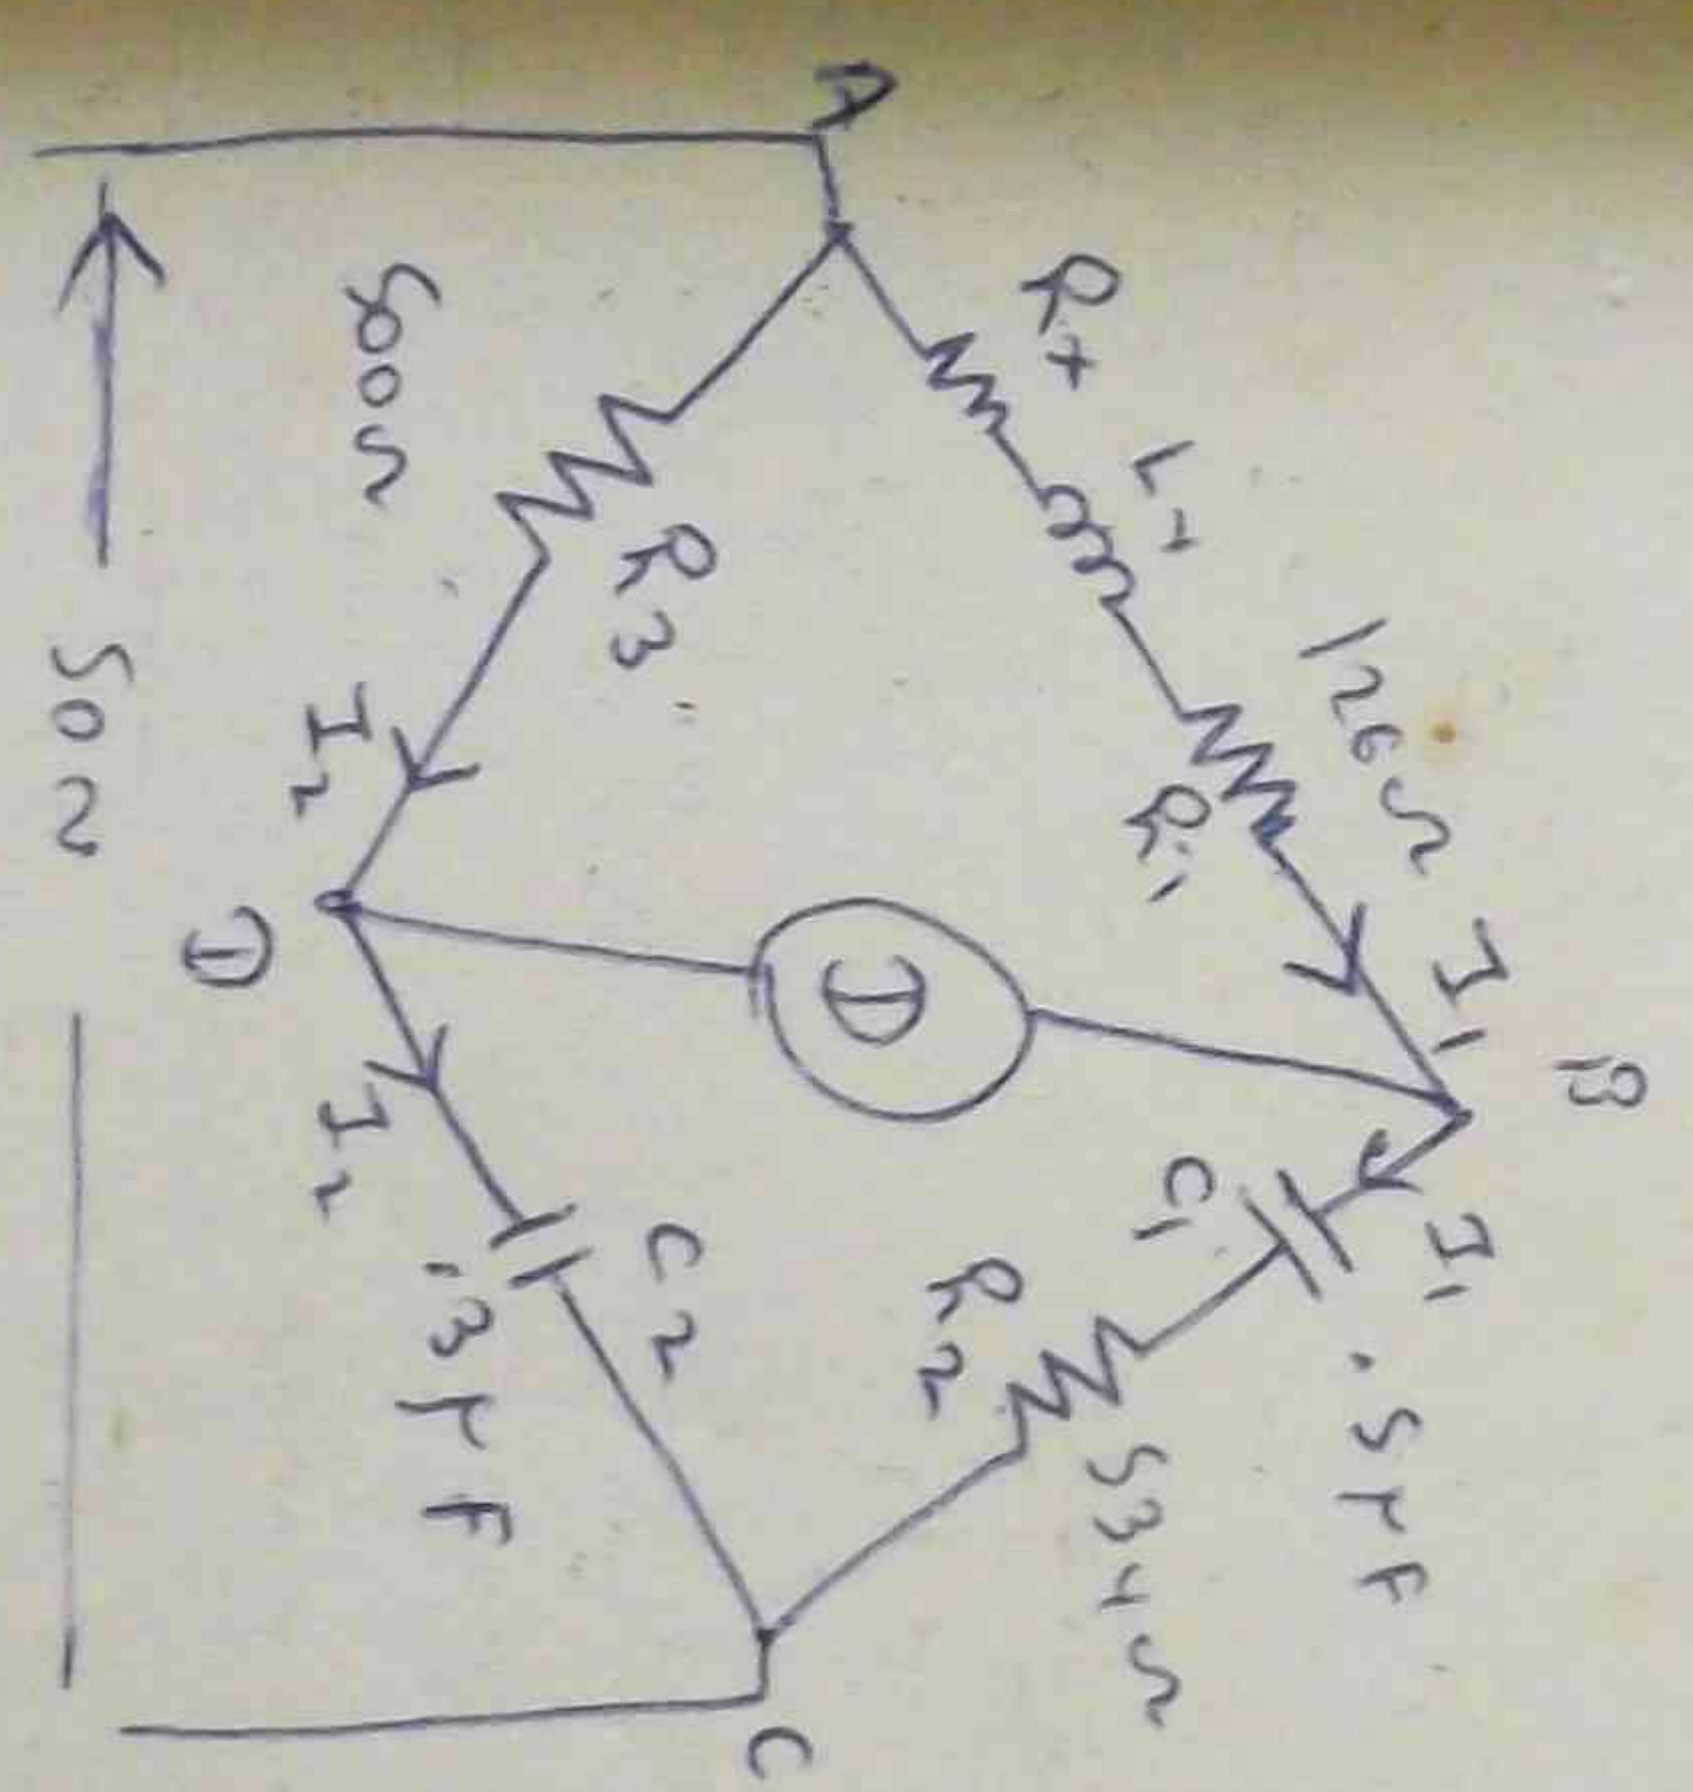 A
Rx
Lx
126Ω
R1
I1
B
I1
C1
.5μF
R2
534Ω
C
500Ω
R3
I2
D
D
I2
C2
.3μF
50